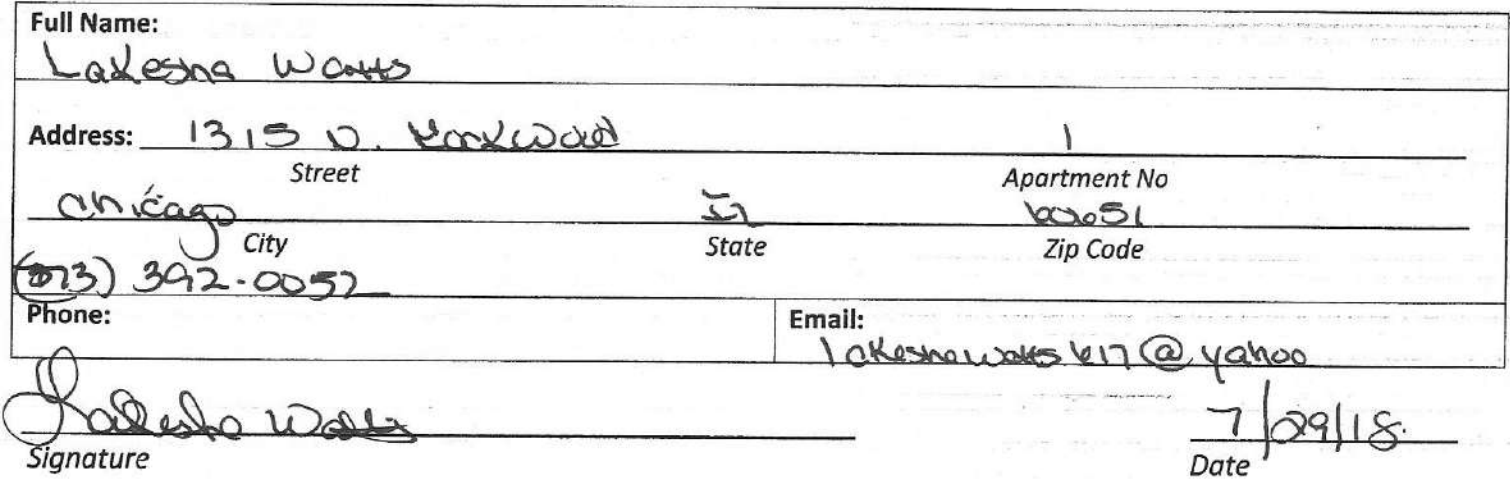 Full Name:
Lakesha Watts
Address: 1315 N. 1
Street Apartment No
Chicago IL 60651
City State Zip Code
(773) 392-0052
Phone: Email:
lakeshawatts617@yahoo
Lakesha Watts 7/29/18
Signature Date